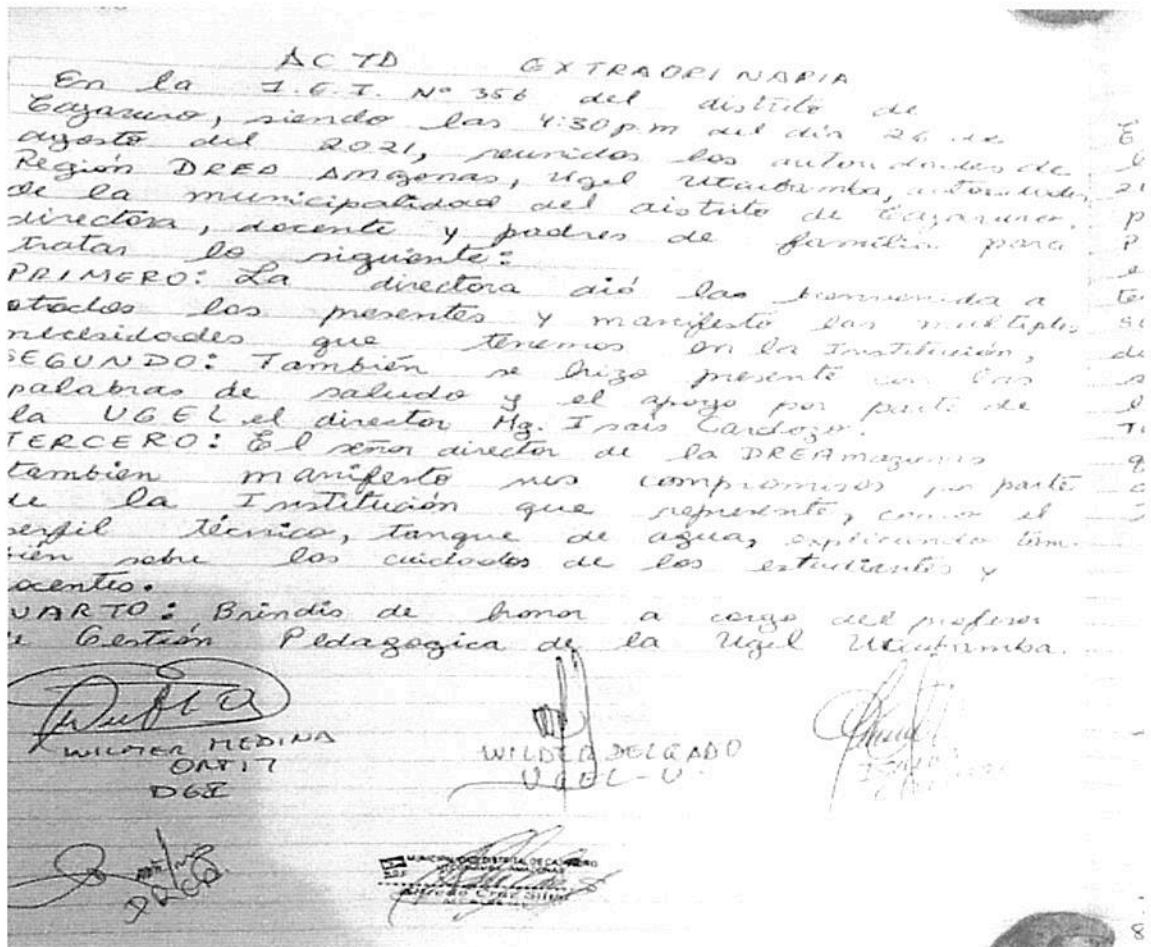 ACTA EXTRAORDINARIA
En la I.E.I. N° 356 del distrito de
Cajaruro, siendo las 4:30 p.m del día 26 de
agosto del 2021, reunidos los autoridades de
Región DREA Amazonas, Ugel Utcubamba, autoridades
de la municipalidad del distrito de Cajaruro,
directora, docente y padres de familia para
tratar lo siguiente:
PRIMERO: La directora dió las bienvenida a
atodos los presentes y manifesto las multiples
necesidades que tenemos en la Institución,
SEGUNDO: También se hizo presente con las
palabras de saludo y el apoyo por parte de
la UGEL el director Mg. Isaís Cardozo.
TERCERO: El señor director de la DREAmazonas
tambien manifesto sus compromisos por parte
de la Institución que represente, como el
perfil técnico, tanque de agua, explicando tam-
bién sobre los cuidados de los estudiantes y
docentes.
CUARTO: Brindis de honor a cargo del profesor
de Gestión Pedagogica de la Ugel Utcubamba.
WILMER MEDINA
ORTIZ
DGI
WILDER DELGADO
UGEL-U.
MUNICIPALIDAD DISTRITAL DE CAJARURO
UTCUBAMBA - AMAZONAS
Alfredo Cruz Silva